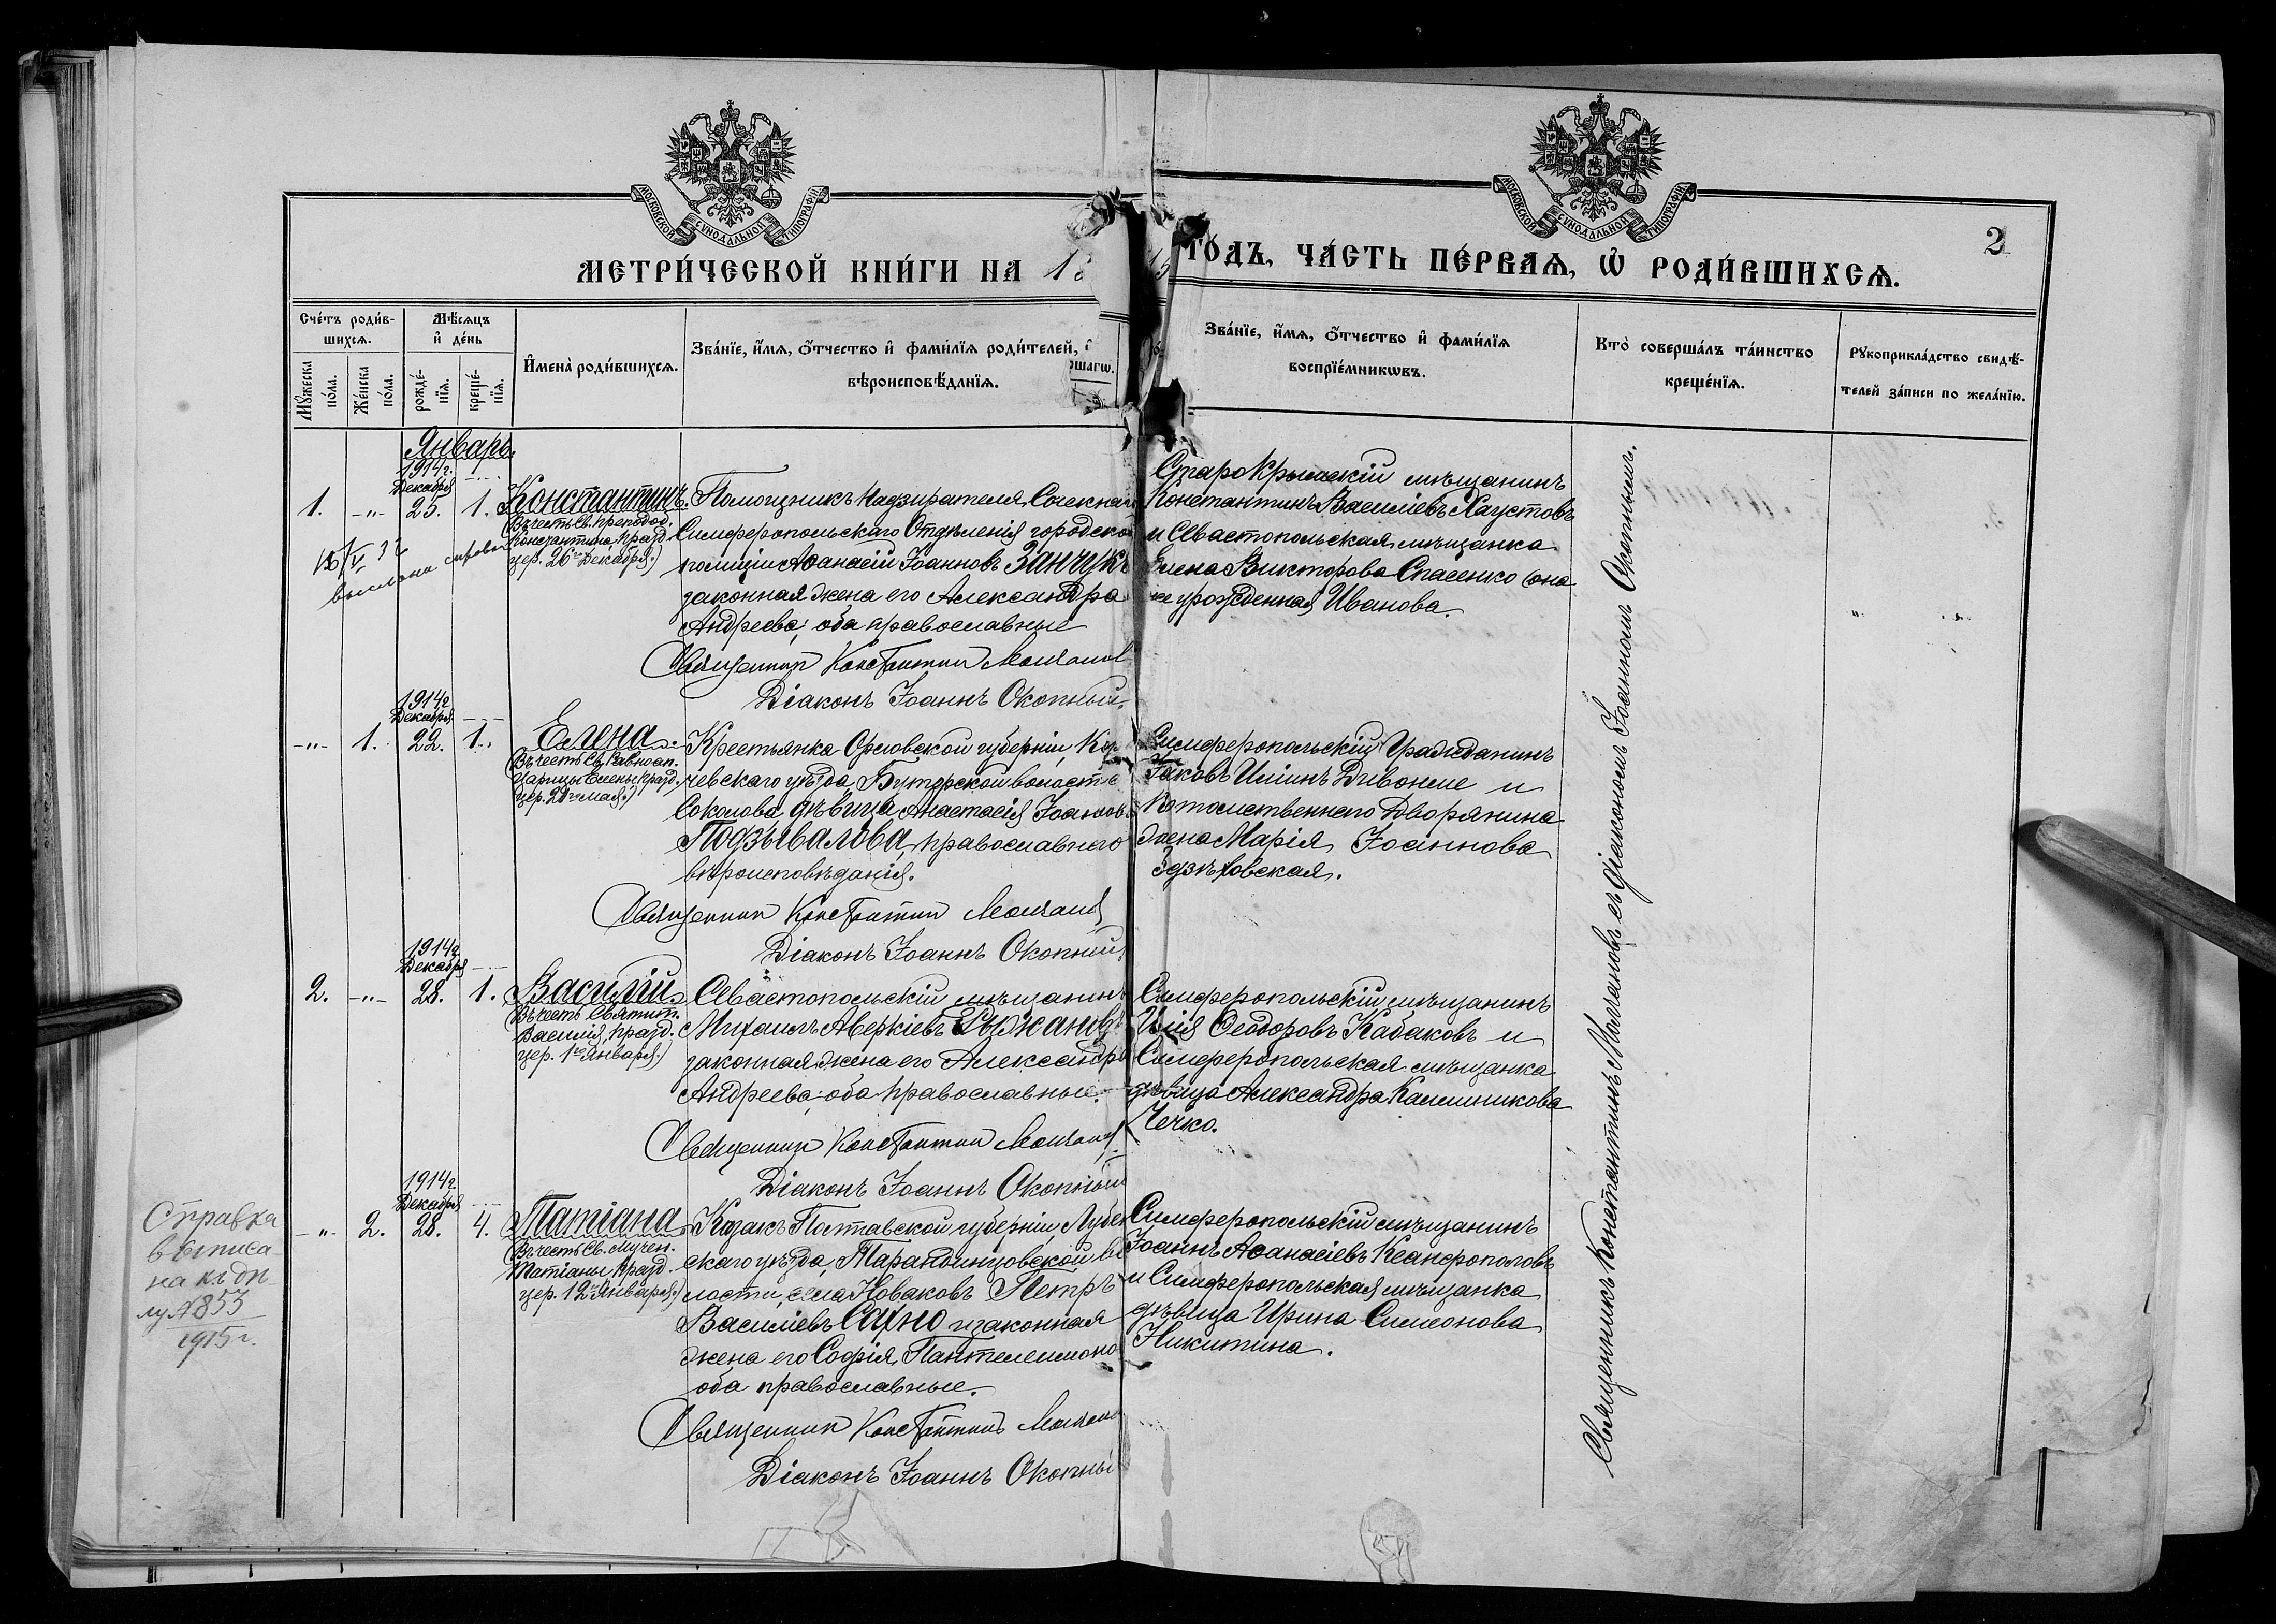 МОСКОВСКОЙ СѴНОДАЛЬНОЙ ТИПОГРАФІИ
МОСКОВСКОЙ СѴНОДАЛЬНОЙ ТИПОГРАФІИ
2
МЕТРИ́ЧЕСКОЙ КНИ́ГИ НА 1
15 ГО́ДЪ, ЧА́СТЬ ПЕ́РВАѦ, Ѡ҆ РОДИ́ВШИХСѦ.
Счéтъ роди́в-
шихсѧ.
Мꙋ́жеска по́ла.
Же́нска по́ла.
Мѣ́сѧцъ
и҆ де́нь
рожде́-
нїѧ.
креще́-
нїѧ.
И҆мена̀ роди́вшихсѧ.
Зва́нїе, и҆́мѧ, ѻ҆́тчество и҆ фами́лїѧ роди́телей,
вѣроисповѣ́данїѧ.
Зва́нїе, и҆́мѧ, ѻ҆́тчество и҆ фами́лїѧ
воспрїе́мникѡвъ.
Кто̀ соверша́лъ та́инство
креще́нїѧ.
Рꙋкоприкла́дство свидѣ́-
телей за́писи по жела́нїю.
Январь.
1914г.
Декабря
1. -"- 25. 1. Константинъ.
Въ честь Св. преподоб.
Константина, празд.
цер. 26го Декабря.)
Помощникъ Надзирателя Сыскнаго
Симферопольскаго Отдѣленія городской
полиціи Аѳанасій Іоанновъ Занчукъ
законная жена его Александра
Андреева; оба православные
Священникъ Константинъ Молчанов
Діаконъ Іоаннъ Окопный.
СтароКрымскій мѣщанинъ
Константинъ Васильевъ Хаустовъ
и Севастопольская мѣщанка
Елена Викторова Спасенко (она
же урожденная Иванова.
1914г
Декабря
-"- 1. 22. 1. Елена.
Въ честь Св. Равноап.
Царицы Елены празд.
цер. 21го мая.)
Крестьянка Орловской губерніи,
чевскаго уѣзда, Бутырской волости
Соколова дѣвица Анастасія Іоанов
Подзывалова, православнаго
вѣроисповѣданія.
Священникъ Константинъ Молчанов
Діаконъ Іоаннъ Окопный.
Симферопольскій Гражданинъ
Іаковъ Ильинъ и
Потомственнаго Дворянина
жена Марія Іоаннова
1914г.
Декабря
2. -"- 28. 1. Василій.
Въ честь Святит.
Василія, празд.
цер. 1го Января.)
Севастопольскій мѣщанинъ
Михаилъ Аверкіевъ
законная жена его Александра
Андреева; оба православные.
Священникъ Константинъ Молчанов
Діаконъ Іоаннъ Окопный
Симферопольскій мѣщанинъ
Илія Ѳеодоровъ Кабаковъ и
Симферопольская мѣщанка
дѣвица Александра Калинникова
Чечко.
1914г.
Декабря
-"- 2. 28. 4. Татіана
Въ честь Св. Мучен.
Татіаны празд.
цер. 12го Января.)
Козакъ Полтавской губерніи, Лубен
скаго уѣзда, Тарандинцовской во
лости, села Новаковъ Петръ
Василіевъ Сахно и законная
жена его Софія Пантелеимоно
оба православные.
Священникъ Константинъ Молчано
Діаконъ Іоаннъ Окопны
Симферопольскій мѣщанинъ
Іоаннъ Аѳанасіевъ Ксанфополовъ
и Симферопольская мѣщанка
дѣвица Ирина Симеонова
Никитина.
Священникъ Константинъ Молчановъ съ діакономъ Іоанномъ Окопнымъ.
выслана справка
Справка
выписа
на къ дѣ
лу № 853
1915г.